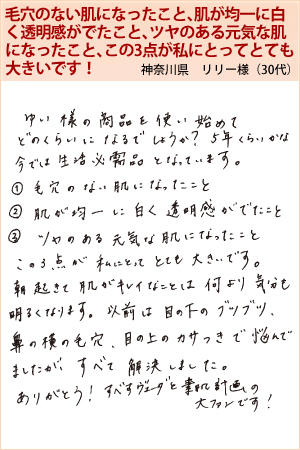 毛穴のない肌になったこと、肌が均一に白
く透明感がでたこと、ツヤのある元気な肌
になったこと、この3点が私にとってとても
大きいです！
神奈川県　リリー様（30代）
ゆい様の商品を使い始めて
どのくらいになるでしょうか？5年くらいかな
今では生活必需品となっています。
① 毛穴のない肌になったこと
② 肌が均一に白く透明感がでたこと
③ ツヤのある元気な肌になったこと
この3点が私にとってとても大きいです。
朝起きて肌がキレイなことは何より気分も
明るくなります。以前は目の下のブツブツ、
鼻の横の毛穴、目の上のカサつきで悩んで
ましたが、すべて解決しました。
ありがとう！すべすべヴェーダと素肌計画の
大ファンです！